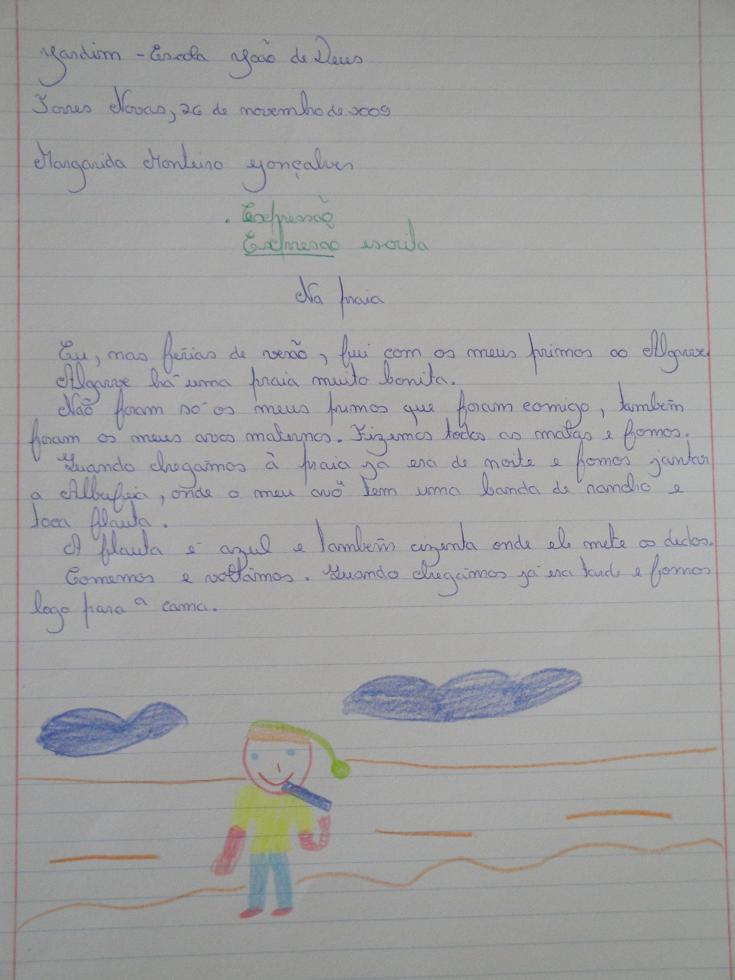 Jardim - Escola João de Deus
Torres Novas, 26 de novembro de 2009
Margarida Monteiro Gonçalves
. Expressão
Expressão escrita
Na praia
Eu, nas férias de verão, fui com os meus primos ao Algarve.
Algarve há uma praia muito bonita.
Não foram só os meus primos que foram comigo, também
foram os meus avós maternos. Fizemos todos as malas e fomos.
Quando chegámos à praia já era de noite e fomos jantar
a Albufeia, onde o meu avô tem uma banda de rancho e
toca flauta.
A flauta é azul e também cizenta onde ele mete os dedos.
Comemos e voltámos. Quando chegámos já era tarde e fomos
logo para a cama.